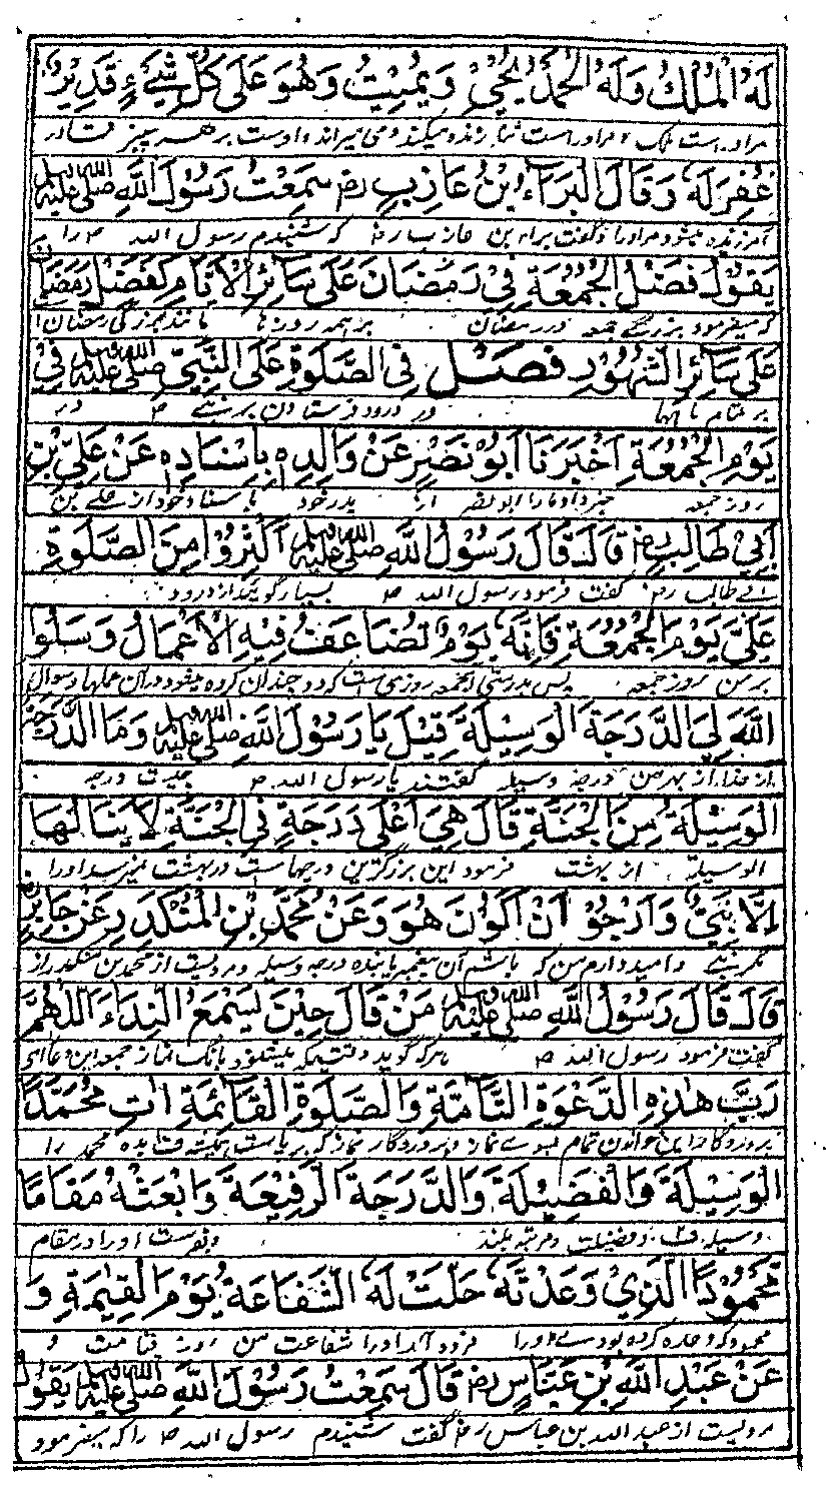 لَهُ الْمُلْكُ وَلَهُ الْحَمْدُ يُحْيِيْ وَيُمِيْتُ وَهُوَ عَلَى كُلِّ شَيْءٍ قَدِيْرٌ
مراوراست ملک و مراوراست ثنا زنده میکند و می میراند و اوست بر هر چیز قادر
غُفِرَ لَهُ وَقَالَ الْبَرَاءُ بْنُ عَازِبٍ رض سَمِعْتُ رَسُوْلَ اللّٰهِ صلى الله عليه وسلم
آمرزیده میشود مراورا و گفت براء بن عازب رض که شنیدم رسول الله ص را
يَقُوْلُ فَضْلُ الْجُمُعَةِ فِيْ رَمَضَانَ عَلَى سَائِرِ الْأَيَّامِ كَفَضْلِ رَمَضَانَ
که میفرمود بزرگی جمعه در رمضان بر همه روزها مانند بزرگی رمضان
عَلَى سَائِرِ الشُّهُوْرِ فَصْــلٌ فِي الصَّلٰوةِ عَلَى النَّبِيِّ صلى الله عليه وسلم فِيْ
بر تمام ماهها در درود فرستادن بر نبی ص در
يَوْمِ الْجُمُعَةِ أَخْبَرَنَا أَبُوْ نَصْرٍ عَنْ وَالِدِهِ بِإِسْنَادِهِ عَنْ عَلِيِّ بْنِ
روز جمعه خبر داد مارا ابو نصر از پدر خود باسناد خود از علی بن
أَبِيْ طَالِبٍ رض قَالَ قَالَ رَسُوْلُ اللّٰهِ صلى الله عليه وسلم أَكْثِرُوْا مِنَ الصَّلٰوةِ
ابی طالب رض گفت فرمود رسول الله ص بسیار گوئید از درود
عَلَيَّ يَوْمَ الْجُمُعَةِ فَإِنَّهُ يَوْمٌ تُضَاعَفُ فِيْهِ الْأَعْمَالُ وَسَلُوا
بر من بروز جمعه پس بدرستی که جمعه روزی است که دو چندان کرده میشود در آن عملها و سوال
اللّٰهَ لِيَ الدَّرَجَةَ الْوَسِيْلَةَ قِيْلَ يَا رَسُوْلَ اللّٰهِ صلى الله عليه وسلم وَمَا الدَّرَجَةُ
از خدا از بهر من درجه وسیله گفتند یا رسول الله ص چیست درجه
الْوَسِيْلَةُ مِنَ الْجَنَّةِ قَالَ هِيَ أَعْلَى دَرَجَةٍ فِي الْجَنَّةِ لَا يَنَالُهَا
الوسیله از بهشت فرمود این بزرگترین درجهاست در بهشت نمیرسد او را
إِلَّا نَبِيٌّ وَأَرْجُوْ أَنْ أَكُوْنَ هُوَ وَعَنْ مُحَمَّدِ بْنِ الْمُنْكَدِرِ عَنْ جَابِرٍ
مگر نبی و امید دارم من که باشم آن پیغمبر یابنده درجه وسیله و مرویست از محمد بن منکدر از
قَالَ قَالَ رَسُوْلُ اللّٰهِ صلى الله عليه وسلم مَنْ قَالَ حِيْنَ يَسْمَعُ النِّدَاءَ اَللّٰهُمَّ
گفت فرمود رسول الله ص هر که گوید وقتیکه میشنود بانگ نماز جمعه این دعا
رَبَّ هٰذِهِ الدَّعْوَةِ التَّامَّةِ وَالصَّلٰوةِ الْقَائِمَةِ اٰتِ مُحَمَّدًا
پروردگار این خواندن تمام نماز و پروردگار نماز که برپاست بده محمد را
الْوَسِيْلَةَ وَالْفَضِيْلَةَ وَالدَّرَجَةَ الرَّفِيْعَةَ وَابْعَثْهُ مَقَامًا
وسیله و فضیلت و مرتبه بلند و بفرست او را در مقام
مَحْمُوْدًا الَّذِيْ وَعَدْتَهُ حَلَّتْ لَهُ الشَّفَاعَةُ يَوْمَ الْقِيٰمَةِ وَ
محمود که وعده کرده بودی او را فرود آید او را شفاعت من روز قیامت و
عَنْ عَبْدِ اللّٰهِ بْنِ عَبَّاسٍ رض قَالَ سَمِعْتُ رَسُوْلَ اللّٰهِ صلى الله عليه وسلم يَقُوْلُ
مرویست از عبد الله بن عباس رض گفت شنیدم رسول الله ص را که میفرمود